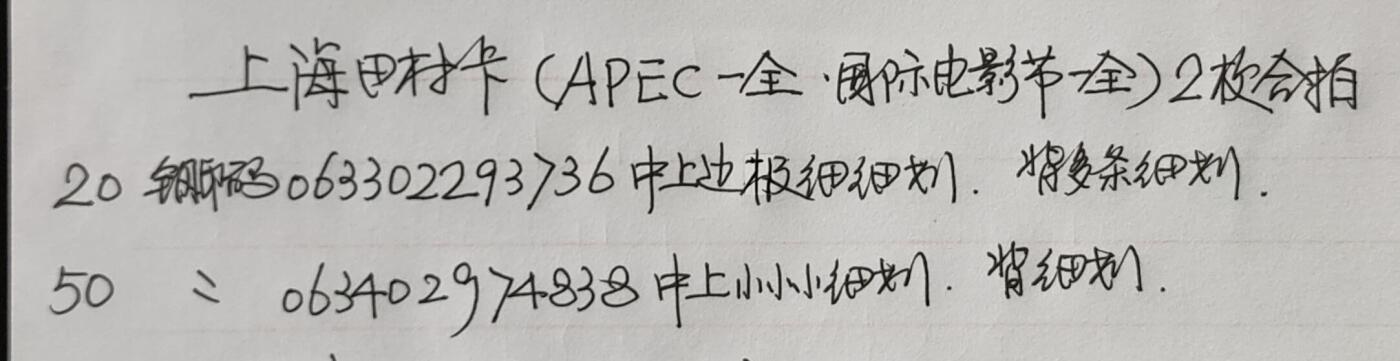 上海田村卡(APEC一全·国际电影节一全)2枚合拍
20 钢印码063302293736中上边极细细划.背多条细划.
50 〃 063402974838中上小小小细划.背细划.